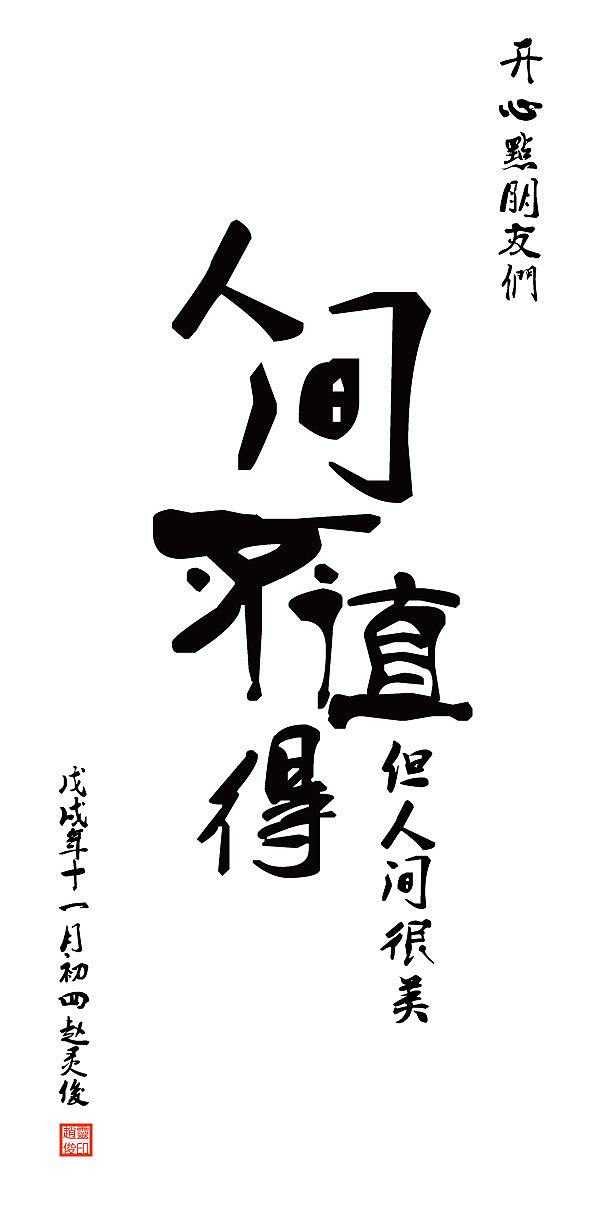 开心點朋友們
人间
不值
得
但人间很美
戊戌年十一月初四赵灵俊
靈印
趙俊